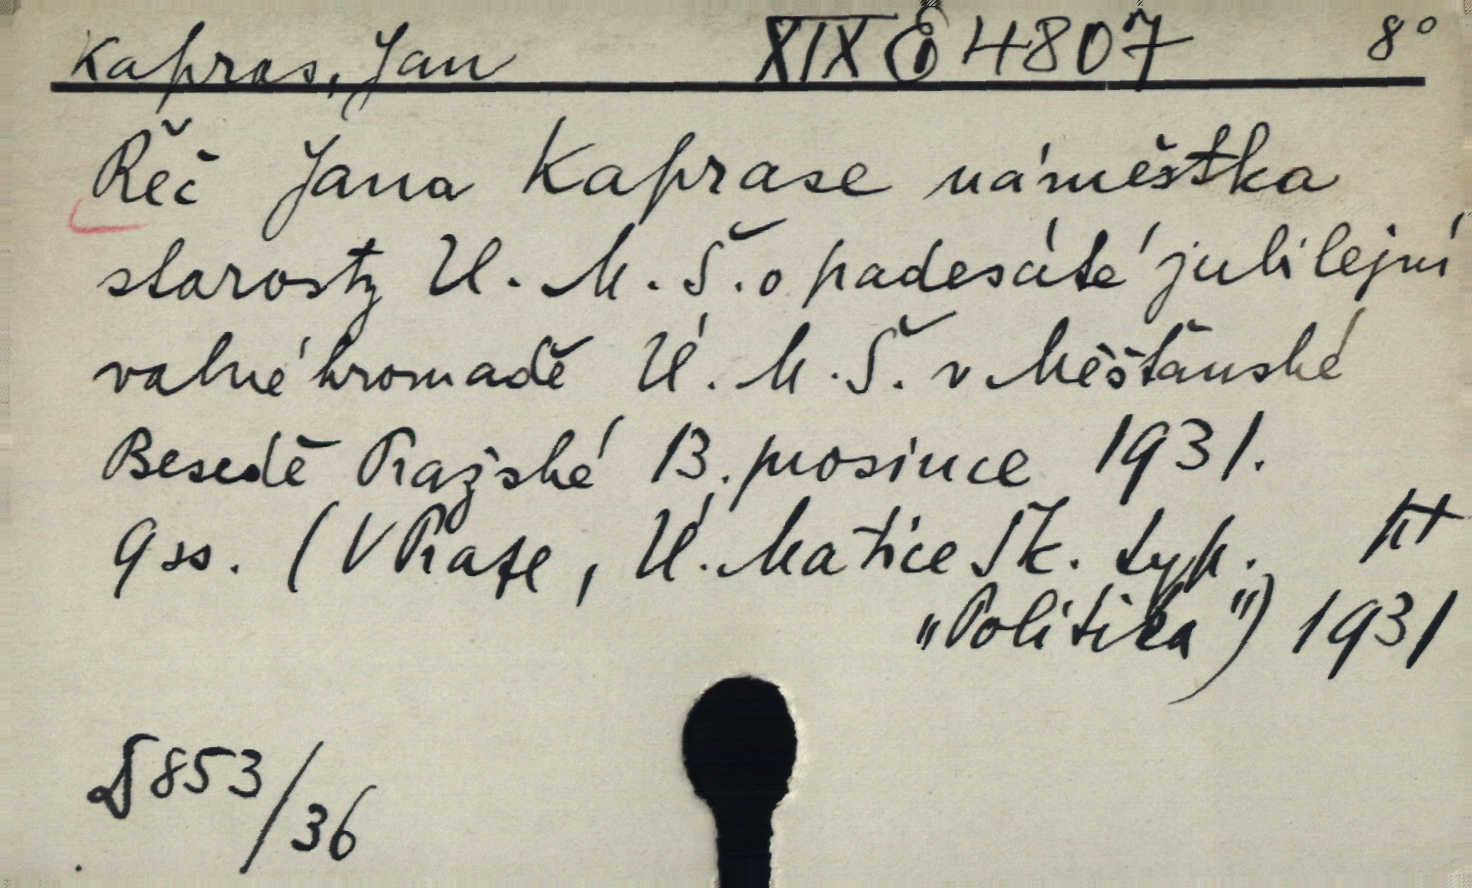 Kapras, Jan XIX E 4807 8°
Řeč Jana Kaprase náměstka
starosty U. M. Š. o padesáté jubilejní
valné hromadě Ú. M. Š. v Měšťanské
Besedě Pražské 13. prosince 1931.
9 ss. (V Praze, Ú. Matice Šk. typ.
"Politika") 1931
853/36